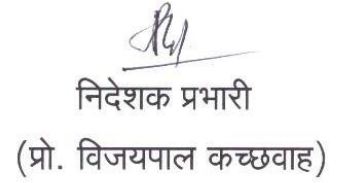 निदेशक प्रभारी
(प्रो. विजयपाल कच्छवाह)